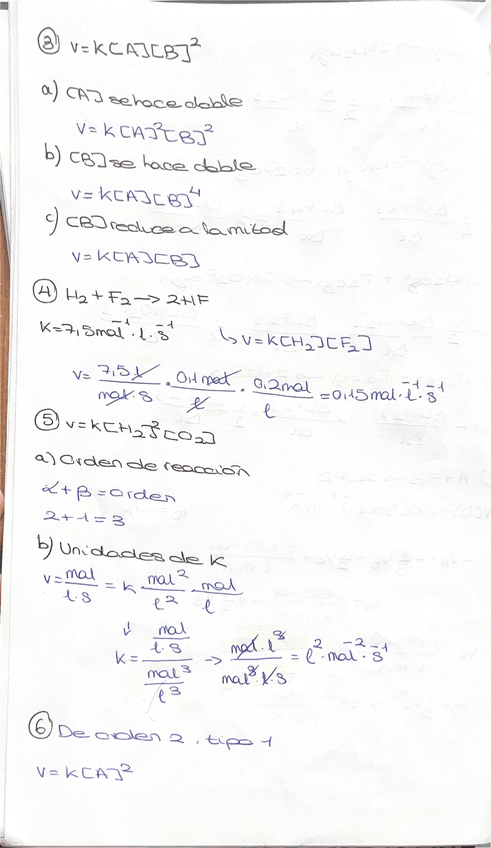 ③ v=K[A][B]²
a) [A] se hace doble
v=K[A]²[B]²
b) [B] se hace doble
v=K[A][B]⁴
c) [B] reduce a la mitad
v=K[A][B]
④ H₂+F₂→2HF
K=7,5mol⁻¹·l·s⁻¹ ↳v=K[H₂][F₂]
v= 7,5l/mol·s · 0,1mol/l · 0,2mol/l =0,15mol·l⁻¹·s⁻¹
⑤ v=K[H₂]²[O₂]
a) Orden de reacción
α+β=orden
2+1=3
b) Unidades de K
v= mol/l·s = K · mol²/l² · mol/l
↓
K= (mol/l·s)/(mol³/l³) → mol·l³/mol³·l·s = l²·mol⁻²·s⁻¹
⑥ De orden 2, tipo 1
v=K[A]²